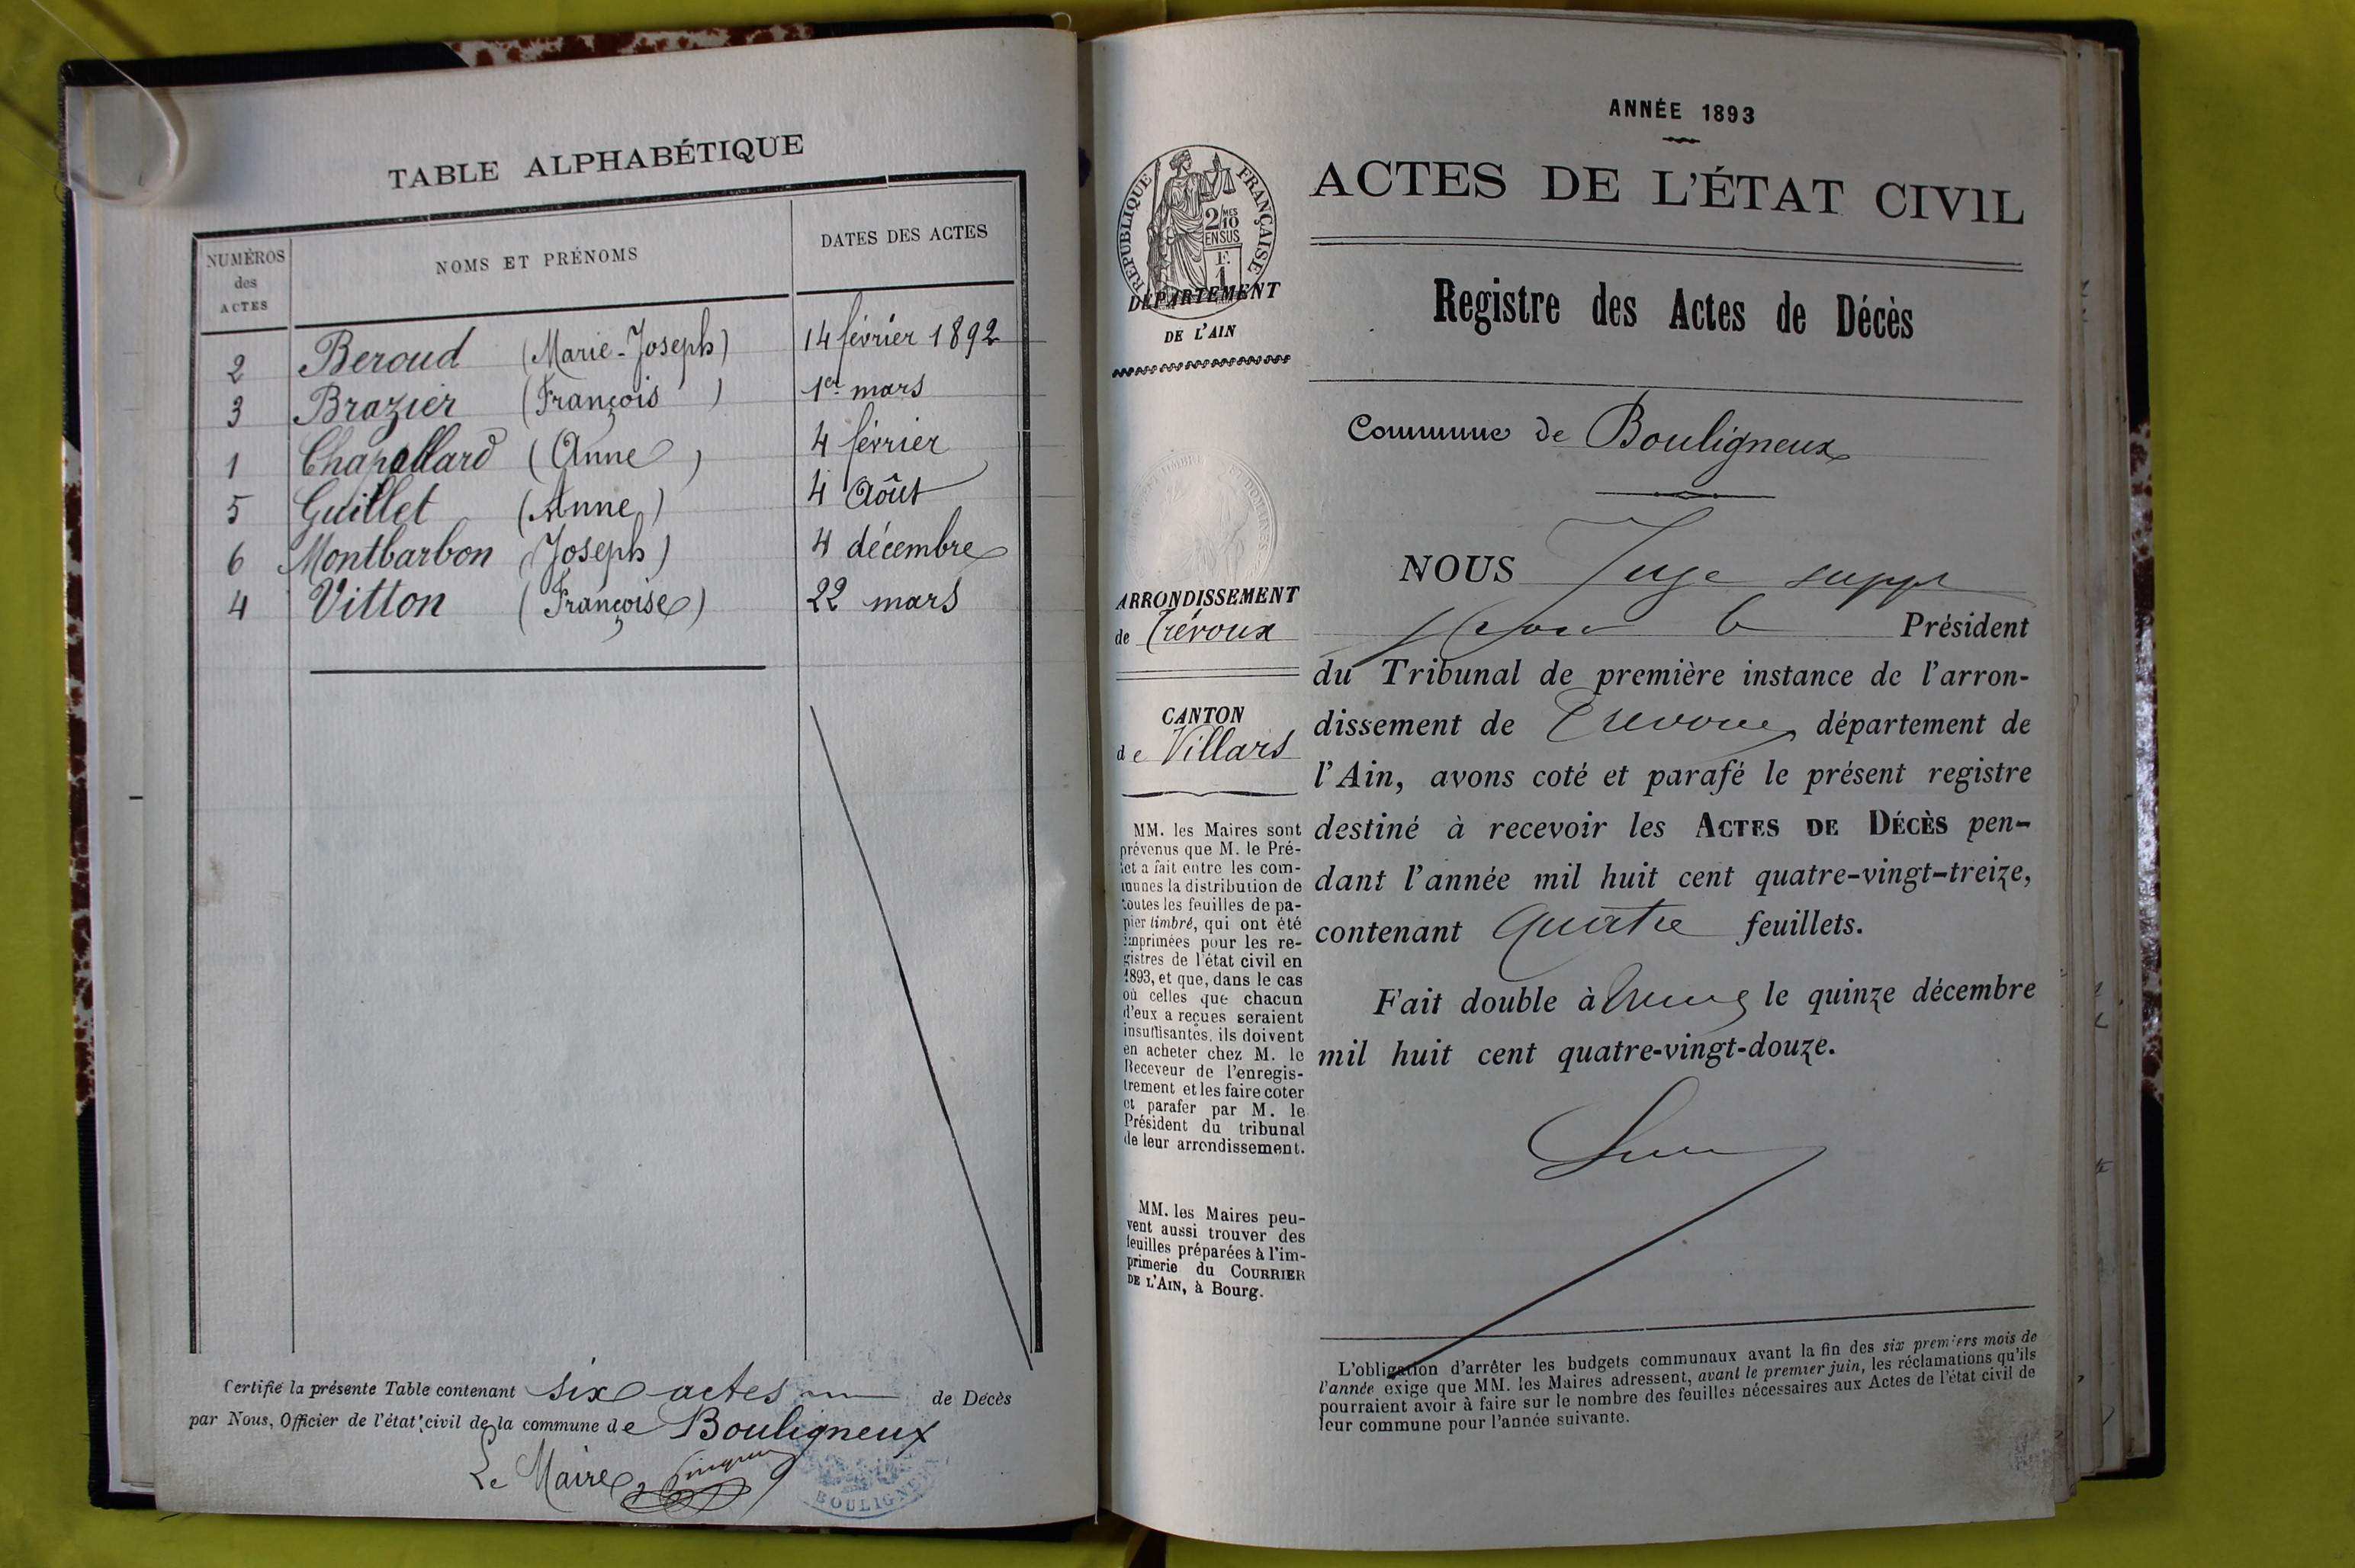 TABLE ALPHABÉTIQUE
NUMÉROS des ACTES
NOMS ET PRÉNOMS
DATES DES ACTES
2 Beroud (Marie-Joseph) 14 février 1892
3 Brazier (François) 1er mars
1 Chapellard (Anne) 4 février
5 Guillet (Anne) 4 Août
6 Montbarbon (Joseph) 4 décembre
4 Vitton (Françoise) 22 mars
Certifié la présente Table contenant six actes de Décès
par Nous, Officier de l'état civil de la commune de Bouligneux
Le Maire
BOULIGNEUX
ANNÉE 1893
ACTES DE L'ÉTAT CIVIL
Registre des Actes de Décès
Commune de Bouligneux
RÉPUBLIQUE FRANÇAISE
2/10 MES
EN SUS
F.
1
DÉPARTEMENT
DE L'AIN
ARRONDISSEMENT
de Trévoux
CANTON
de Villars
MM. les Maires sont
prévenus que M. le Pré-
fet a fait entre les com-
munes la distribution de
toutes les feuilles de pa-
pier timbré, qui ont été
imprimées pour les re-
gistres de l'état civil en
1893, et que, dans le cas
où celles que chacun
d'eux a reçues seraient
insuffisantes, ils doivent
en acheter chez M. le
Receveur de l'enregis-
trement et les faire coter
et parafer par M. le
Président du tribunal
de leur arrondissement.
MM. les Maires peu-
vent aussi trouver des
feuilles préparées à l'im-
primerie du COURRIER
DE L'AIN, à Bourg.
NOUS Juge suppt
Président
du Tribunal de première instance de l'arron-
dissement de Trevoux département de
l'Ain, avons coté et parafé le présent registre
destiné à recevoir les ACTES DE DÉCÈS pen-
dant l'année mil huit cent quatre-vingt-treize,
contenant quatre feuillets.
Fait double à Trevoux le quinze décembre
mil huit cent quatre-vingt-douze.
L'obligation d'arrêter les budgets communaux avant la fin des six premiers mois de
l'année exige que MM. les Maires adressent, avant le premier juin, les réclamations qu'ils
pourraient avoir à faire sur le nombre des feuilles nécessaires aux Actes de l'état civil de
leur commune pour l'année suivante.